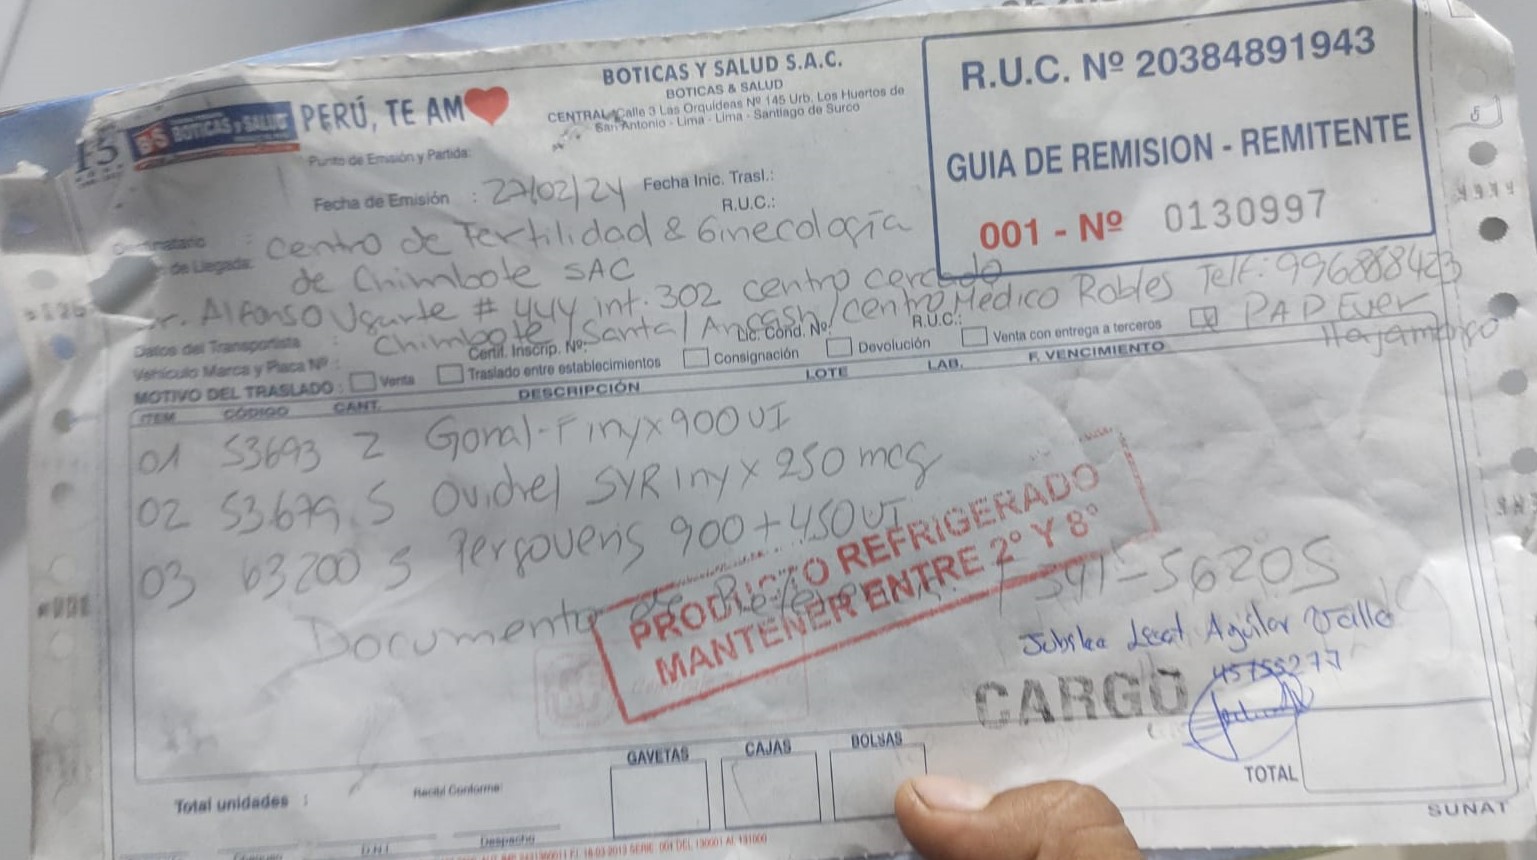 BS BOTICAS Y SALUD PERÚ, TE AM
BOTICAS Y SALUD S.A.C.
BOTICAS & SALUD
CENTRAL: Calle 3 Las Orquídeas Nº 145 Urb. Los Huertos de
San Antonio - Lima - Lima - Santiago de Surco
R.U.C. Nº 20384891943
GUIA DE REMISION - REMITENTE
001 - Nº 0130997
Punto de Emisión y Partida:
Fecha de Emisión : 27/02/24 Fecha Inic. Trasl.:
R.U.C.:
Centro de Fertilidad & Ginecología
de Llegada:
de Chimbote SAC
Jr. Alfonso Ugarte # 444 int. 302 centro cercado
Chimbote / Santa / Ancash / centro Médico Robles Telf: 996888423
Datos del Transportista : Certif. Inscrip. Nº: Lic. Cond. Nº R.U.C.:
PAP Ever
Vehículo Marca y Placa Nº :
MOTIVO DEL TRASLADO : Venta Traslado entre establecimientos Consignación Devolución Venta con entrega a terceros
ITEM CÓDIGO CANT. DESCRIPCIÓN LOTE LAB. F. VENCIMIENTO
01 53693 2 Gonal-F inyx 900 UI
02 53679 5 Ovidrel SYR inyx 250 mcg
03 63200 5 Pergoveris 900 + 450 UI
PRODUCTO REFRIGERADO
MANTENER ENTRE 2° Y 8°
Documento de 591-56205
Aguilar Valle
45755277
CARGO
GAVETAS CAJAS BOLSAS
TOTAL
Total unidades : Recibí Conforme:
SUNAT
Despacho
D.N.I.